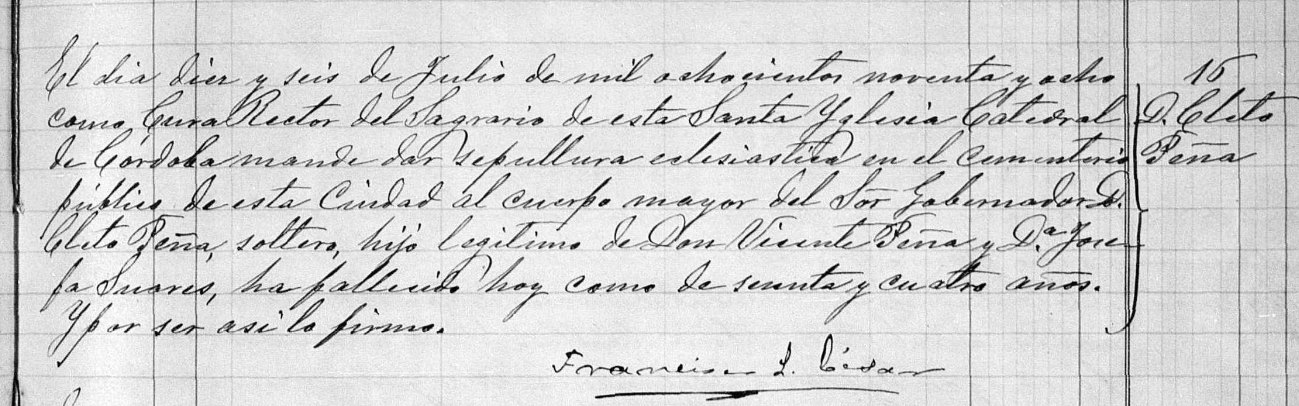 El dia diez y seis de Julio de mil ochocientos noventa y ocho
como Cura Rector del Sagrario de esta Santa Yglesia Catedral
de Córdoba mande dar sepultura eclesiastica en el cementerio
público de esta Ciudad al cuerpo mayor del Sor Gobernador D.
Cleto Peña, soltero, hijo legitimo de Don Vicente Peña y D.ª Jose
fa Suares, ha fallecido hoy como de sesenta y cuatro años.
Y por ser asi lo firmo.
Francisco L. César
16
D. Cleto
Peña